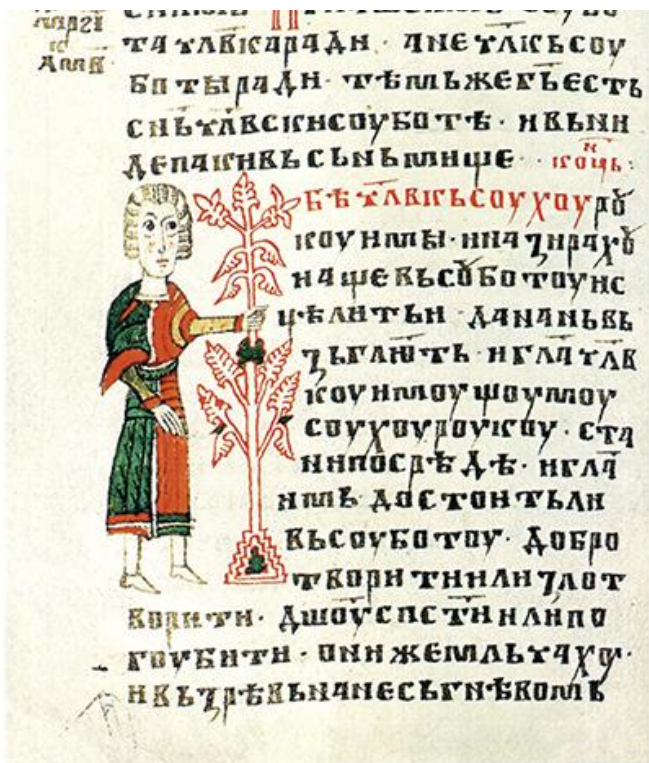 та члвкаради · анечлкьсоу
ботыради · тѣмьжегьесть
сньчлвскисоуботѣ · ивьни
депакивьсьньмище · коць:
бѣчлвкьсоухоурꙋ
коуимы · иназирахꙋ
нащевьсꙋботоуис
цѣлитьи · дананьвь
ꙁьгають · иглачлв
коуимоущоумоу
соухоуроукоу · ста
нипосрѣдѣ · игла
имь достоитьли
вьсоуботоу · добро
творитиилиꙁлот
ворити · дшоуспстиилипо
гоубити · онижемльчахоу ·
ивьꙁрѣвьнанесьгнѣвомь